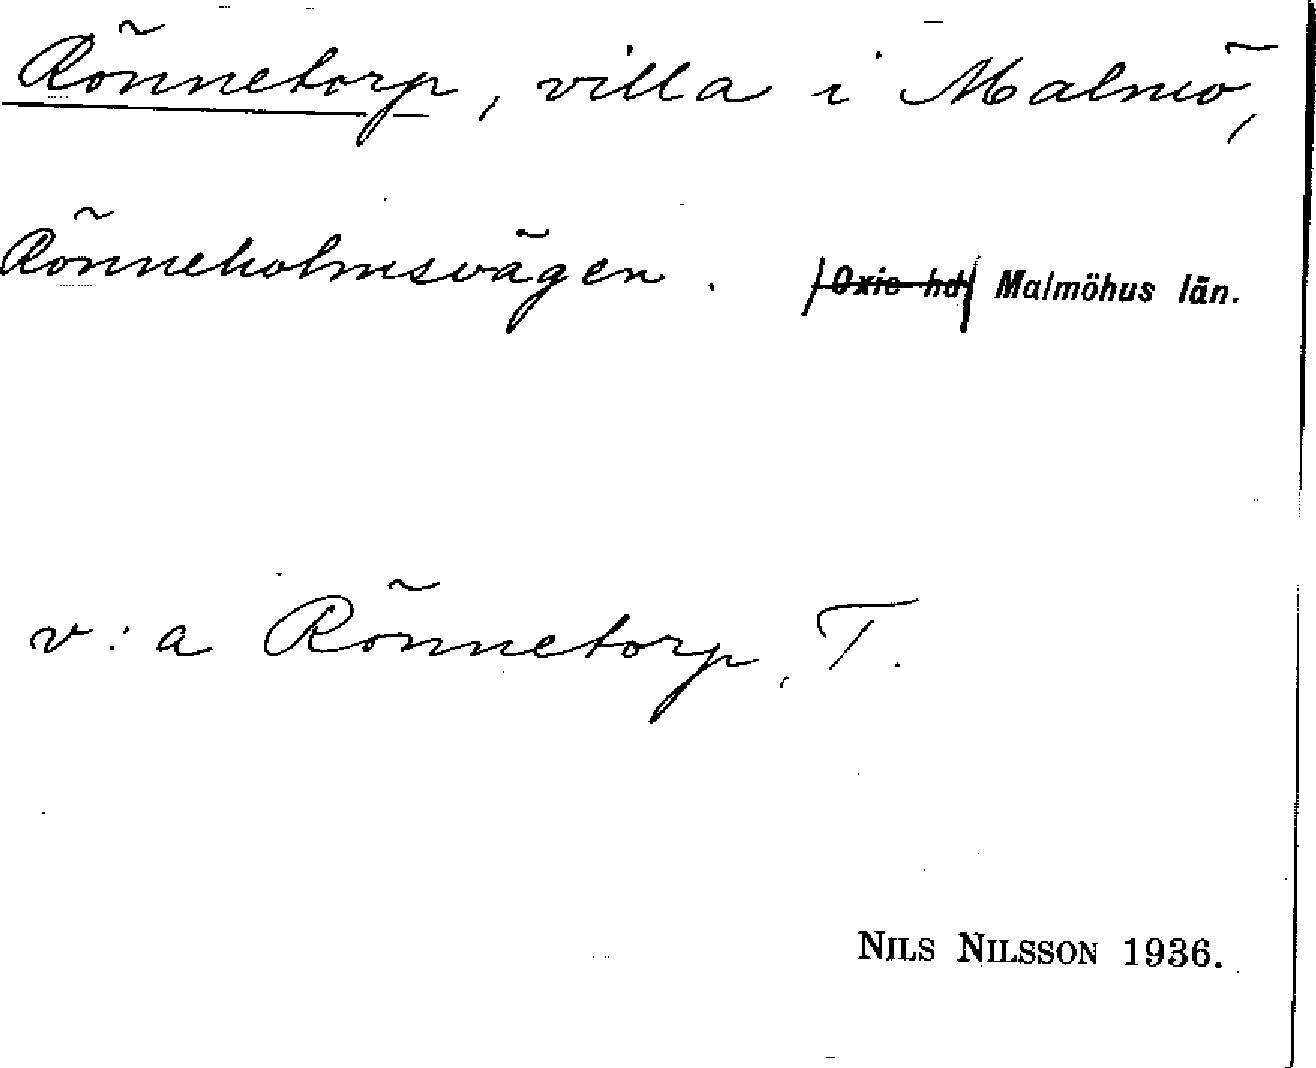 Rönnetorp, villa i Malmö,
Rönneholmsvägen. Oxie hd Malmöhus län.
v:a Rönnetorp, T.
NILS NILSSON 1936.